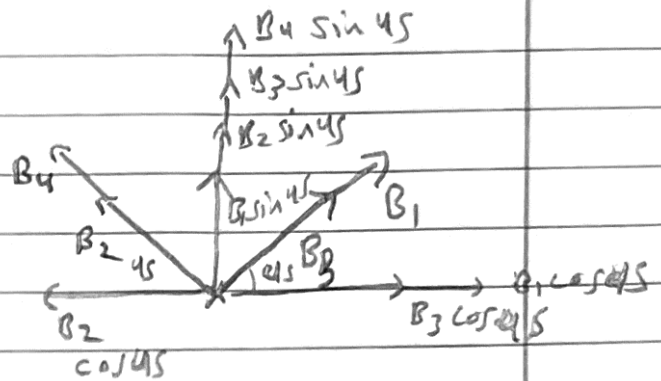 B4 sin 45
B3 sin 45
B2 sin 45
B4
B1 sin 45
B1
B2 45
45 B3
B1 cos 45
B2
cos 45
B3 cos 45